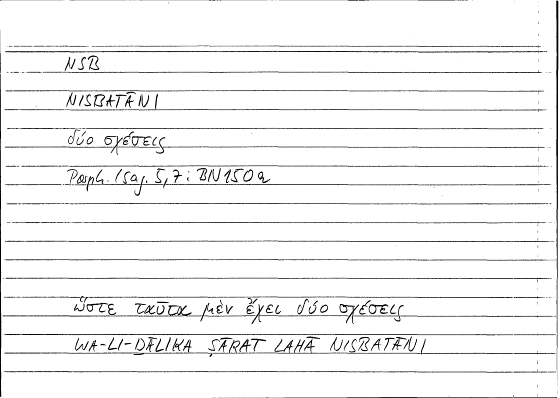 NSB
NISBATĀNI
δύο σχέσεις
Porph. Isag. 5,7: BN 150a
ὥστε ταῦτα μὲν ἔχει δύο σχέσεις
WA-LI-ḎĀLIKA ṢĀRAT LAHĀ NISBATĀNI